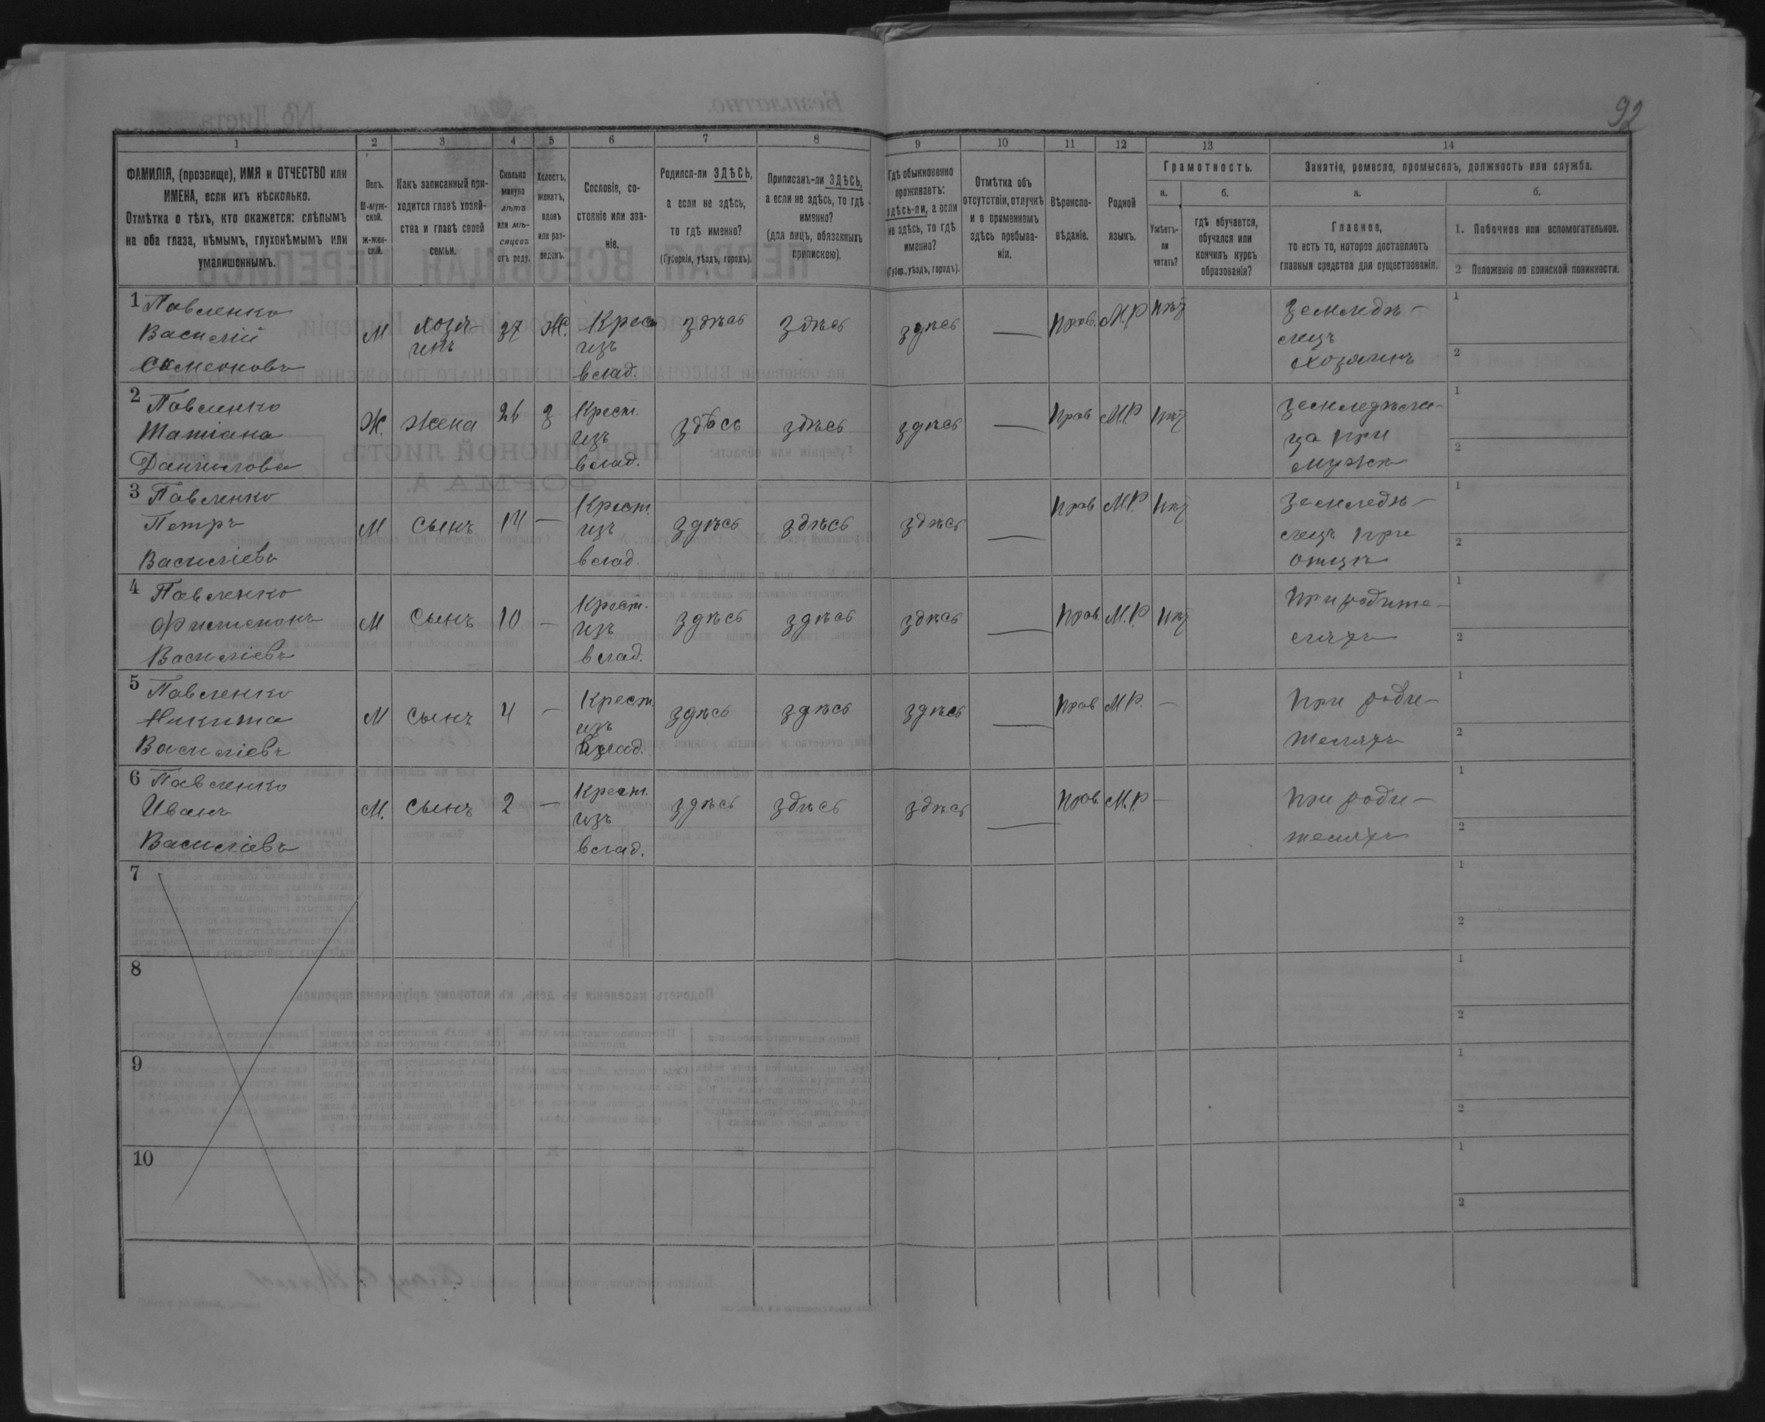 92
1 2 3 4 5 6 7 8 9 10 11 12 13 14
ФАМИЛІЯ, (прозвище), ИМЯ и ОТЧЕСТВО или
ИМЕНА, если ихъ нѣсколько.
Отмѣтка о тѣхъ, кто окажется: слѣпымъ
на оба глаза, нѣмымъ, глухонѣмымъ или
умалишеннымъ.
Полъ.
М-муж-
ской.
ж-жен-
скій.
Какъ записанный при-
ходится главѣ хозяй-
ства и главѣ своей
семьи.
Сколько
минуло
лѣтъ
или мѣ-
сяцевъ
отъ роду.
Холостъ,
женатъ,
вдовъ
или раз-
веденъ.
Сословіе, со-
стояніе или зва-
ніе.
Родился-ли ЗДѢСЬ,
а если не здѣсь,
то гдѣ именно?
(Губернія, уѣздъ, городъ).
Приписанъ-ли ЗДѢСЬ,
а если не здѣсь, то гдѣ
именно?
(для лицъ, обязанныхъ
припискою).
Гдѣ обыкновенно
проживаетъ:
здѣсь-ли, а если
не здѣсь, то гдѣ
именно?
(Губер., уѣздъ, городъ).
Отмѣтка объ
отсутствіи, отлучкѣ
и о временномъ
здѣсь пребыва-
ніи.
Вѣроиспо-
вѣданіе.
Родной
языкъ.
Грамотность.
а.
Умѣетъ-
ли
читать?
б.
гдѣ обучается,
обучался или
кончилъ курсъ
образованія?
Занятіе, ремесло, промыселъ, должность или служба.
а.
Главное,
то есть то, которое доставляетъ
главныя средства для существованія.
б.
1. Побочное или вспомогательное.
2 Положеніе по воинской повинности.
1 Павленко
Василій
Семеновъ
М
хозя-
инъ
37
Ж.
Крес
изъ
влад.
здѣсь
здѣсь
здѣсь
—
Прав.
М.Р
земледѣ-
лецъ
хозяинъ
1
2
2 Павленко
Татіана
Даниилова
Ж.
жена
26
З
Крест.
изъ
влад.
здѣсь
здѣсь
здѣсь
—
Прав
М.Р
земледѣли-
ца при
мужѣ
1
2
3 Павленко
Петръ
Василіевъ
М
сынъ
14
—
Крест.
изъ
влад.
здѣсь
здѣсь
здѣсь
—
Прав
М.Р
земледѣ-
лецъ при
отцѣ
1
2
4 Павленко
Филимонъ
Василіевъ
М
сынъ
10
—
Крест.
изъ
влад.
здѣсь
здѣсь
здѣсь
—
Прав.
М.Р.
При родите-
ляхъ
1
2
5 Павленко
Никита
Василіевъ
М
сынъ
4
—
Крест
изъ
влад.
здѣсь
здѣсь
здѣсь
—
Прав
М.Р.
—
При роди-
теляхъ
1
2
6 Павленко
Иванъ
Василіевъ
М.
сынъ
2
—
Крест.
изъ
влад.
здѣсь
здѣсь
здѣсь
—
Прав.
М.Р
—
При роди-
теляхъ
1
2
7
1
2
8
1
2
9
1
2
10
1
2